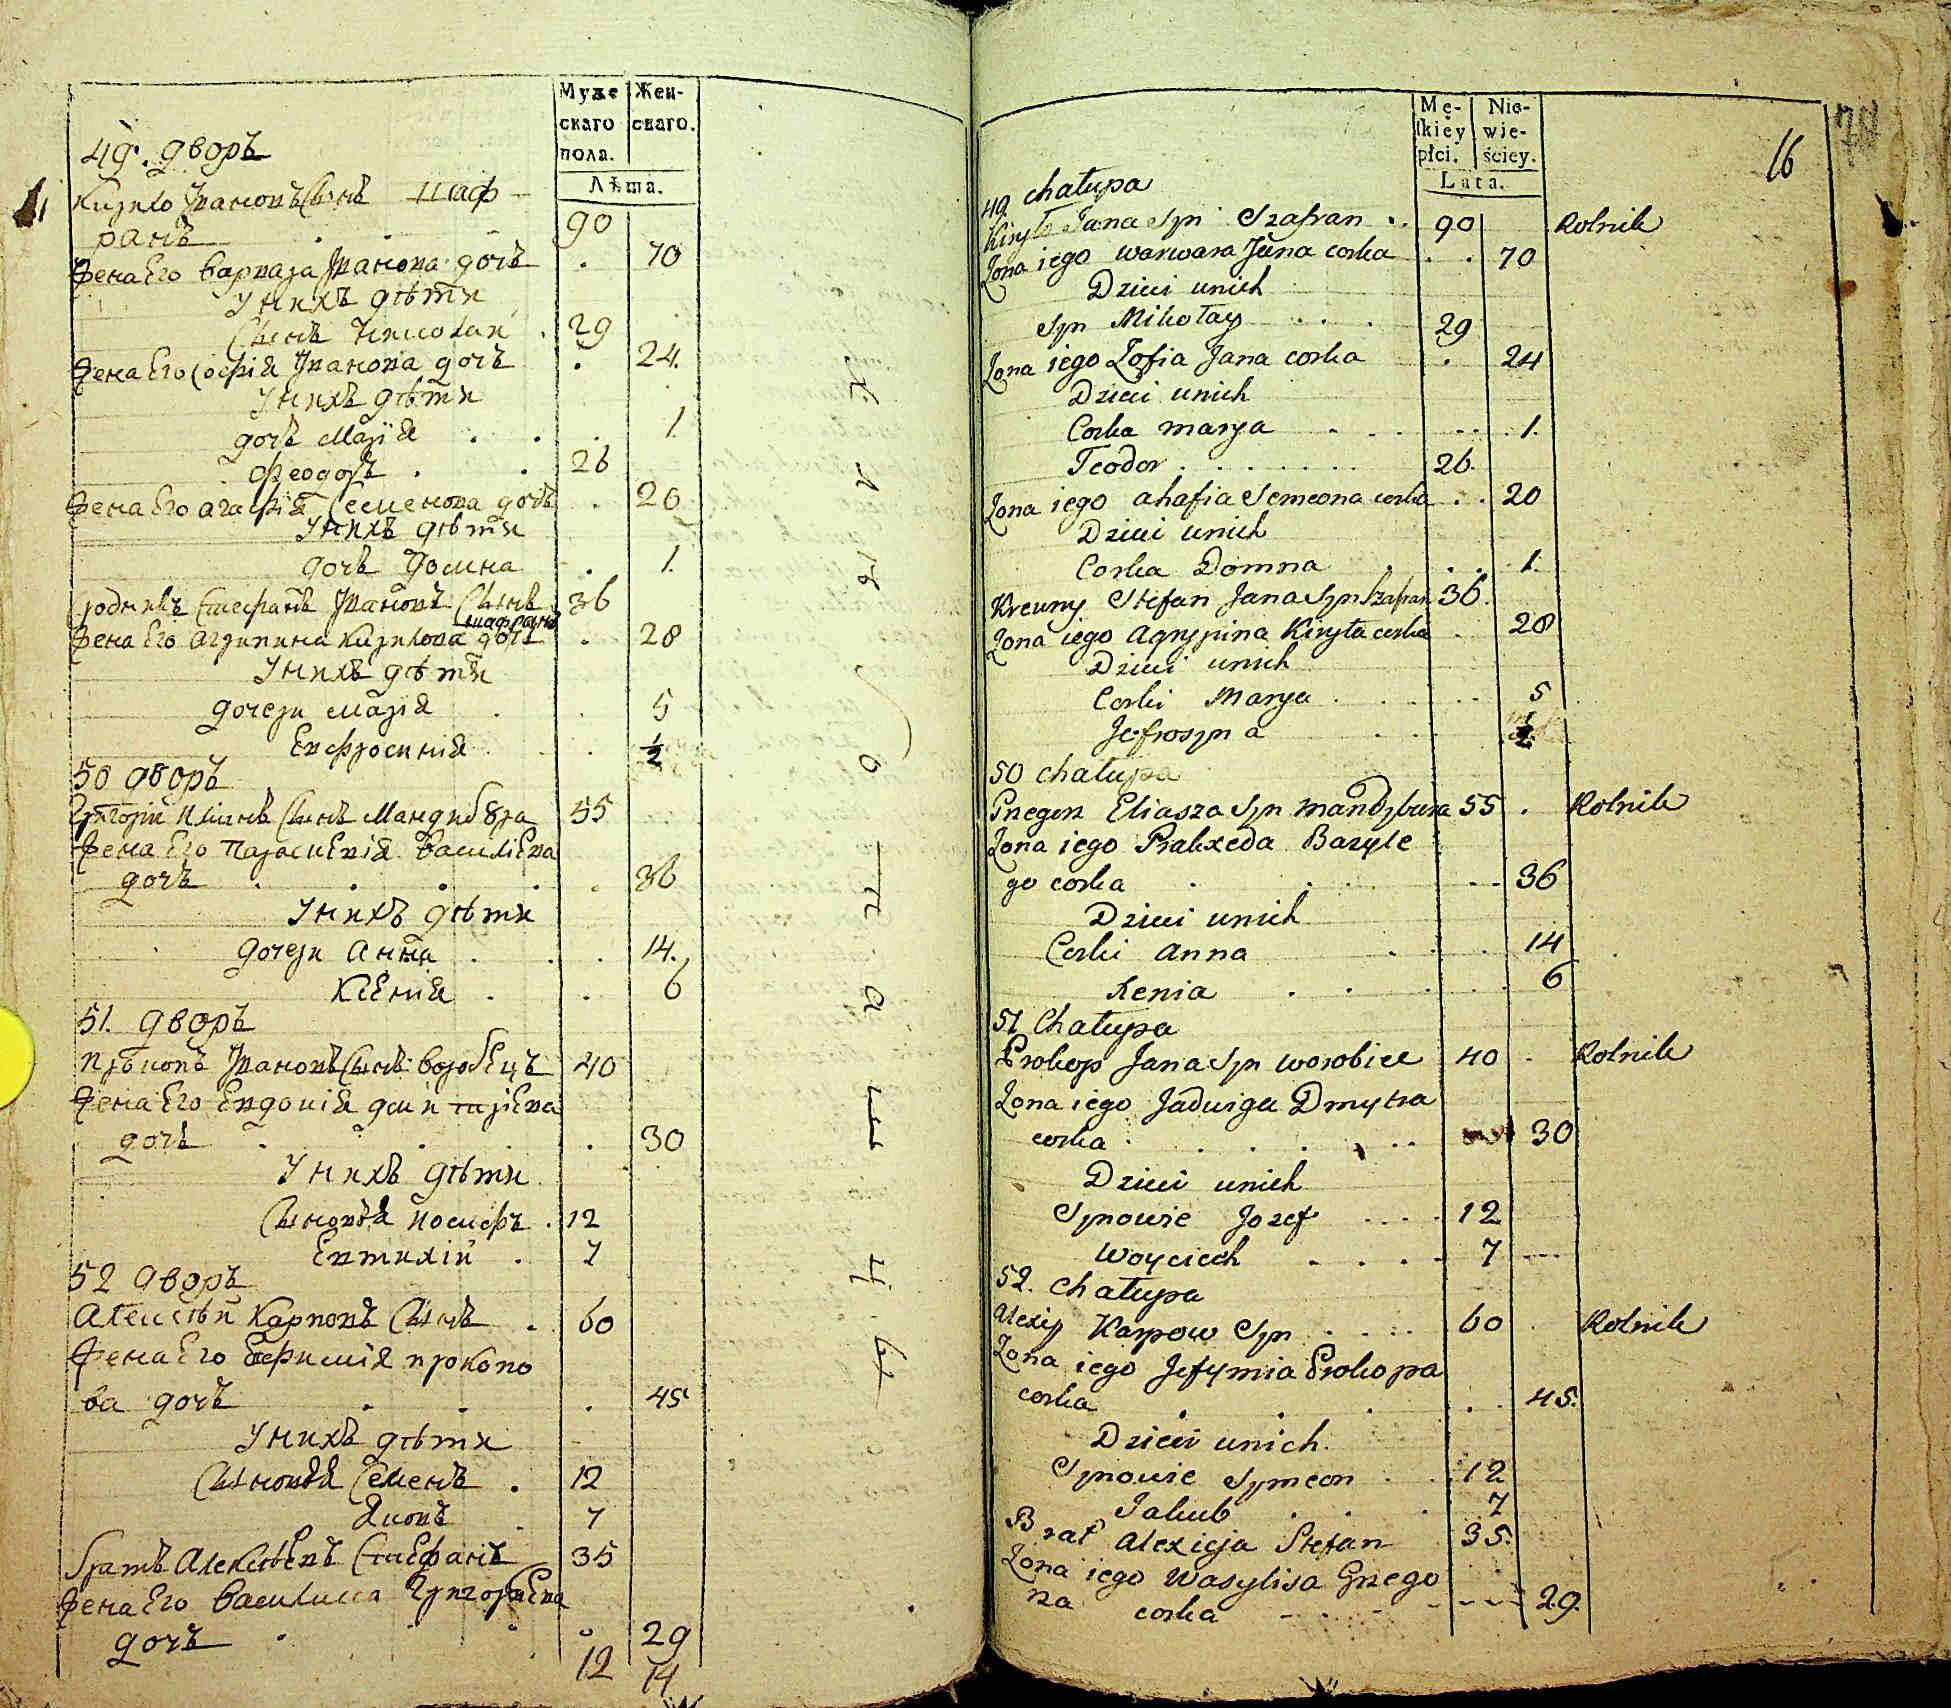 Муже
скаго
пола.
Жен-
скаго.
Лѣта.
49. дворъ
Кирило Ивановъ Сынъ Шаф-
ранъ 90
Жена Его Варвара Иванова дочь 70
У нихъ дѣти
Сынъ Николай 29
Жена Его Софія Иванова дочь 24.
У нихъ дѣти
дочь Марія 1.
Феодоръ 26
Жена Его Агафія Семенова дочь 20
У нихъ дѣти
дочь Домна 1.
Сродникъ Стефанъ Ивановъ Сынъ 36
Шафранъ
Жена Его Агрипина Кирилова дочь 28
У нихъ дѣти
дочери Марія 5
Евфросинія ½
50 дворъ
Григорій Илїинъ Сынъ Мандибура 55
Жена Его Параскевія Василїева
дочь 36
У нихъ дѣти
дочери Анна 14.
Ксенія 6
51. дворъ
Прокопъ Ивановъ Сынъ Воробецъ 40
Жена Его Евдокія Дмитріева
дочь 30
У нихъ дѣти
Сыновья Иосифъ 12
Евтихій 7
52 дворъ
Алексѣй Карповъ Сынъ 60
Жена Его Ефимія Прокопо
ва дочь 45
У нихъ дѣти
Сыновья Семенъ 12
Яковъ 7
Братъ Алексѣевъ Стефанъ 35
Жена Его Василиса Григорїева
дочь 29
12 14
Mę-
skiey
płci.
Nie-
wie-
ściey.
Lata.
16
49. chałupa
Kiryło Jana Syn Szafran 90 Rolnik
Zona iego Warwara Jana corka 70
Dzieci unich
Syn Mikołay 29
Zona iego Zofia Jana corka 24
Dzieci unich
Corka Marya 1.
Teodor 26.
Zona iego Ahafia Semeona corka 20
Dzieci unich
Corka Domna 1.
Krewny Stefan Jana Syn Szafran 36.
Zona iego Agrypina Kiryła corka 28
Dzieci unich
Corki Marya 5
Jefrosyna ½
50 chałupa
Gregorz Eliasza Syn Mandybura 55 Rolnik
Zona iego Praxeda Bazyle
go corka 36
Dzieci unich
Corki Anna 14
Xenia 6
51 Chałupa
Prokop Jana Syn Worobiec 40 Rolnik
Zona iego Jadwiga Dmytra
corka 30
Dzieci unich
Synowie Jozef 12
Woyciech 7
52. Chałupa
Alexiy Karpow Syn 60 Rolnik
Zona iego Jefymia Prokopa
corka 45.
Dzieci unich.
Synowie Symeon 12
Jakub 7
Brat Alexieja Stefan 35.
Zona iego Wasylisa Grzego
rza corka 29.